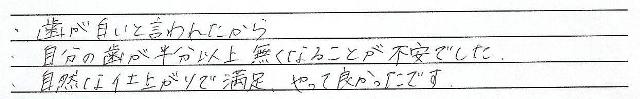 ・歯が白いと言われたから
・自分の歯が半分以上無くなることが不安でした.
・自然な仕上がりで満足、やって良かったです.